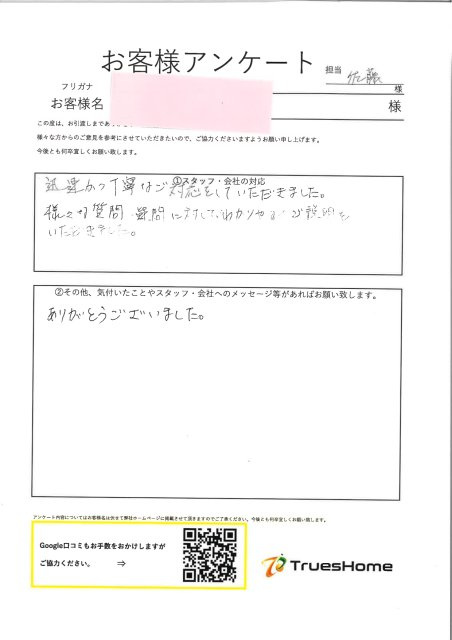 お客様アンケート
担当 佐藤 様
フリガナ
お客様名 様
この度は、お引渡しまであり
様々な方からのご意見を参考にさせていただきたいので、ご協力くださいますようお願い申し上げます。
今後とも何卒宜しくお願い致します。
①スタッフ・会社の対応
迅速かつ丁寧なご対応をしていただきました。
様々な質問、疑問に対して、わかりやすくご説明を
いただきました。
②その他、気付いたことやスタッフ・会社へのメッセージ等があればお願い致します。
ありがとうございました。
アンケート内容についてはお客様名は伏せて弊社ホームページに掲載させて頂きますのでご了承ください。今後とも何卒宜しくお願い致します。
Google口コミもお手数をおかけしますが
ご協力ください。 ⇒
TruesHome